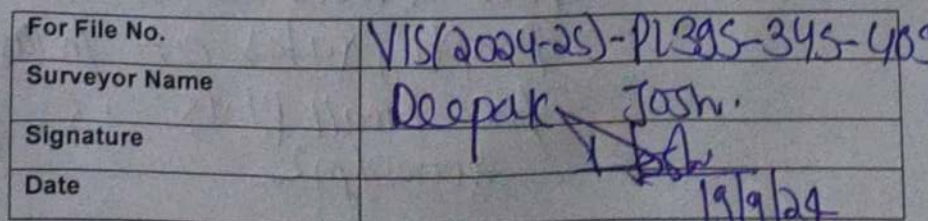 For File No. VIS(2024-25)-PL395-345-
Surveyor Name Deepak Joshi.
Signature
Date 19/9/24